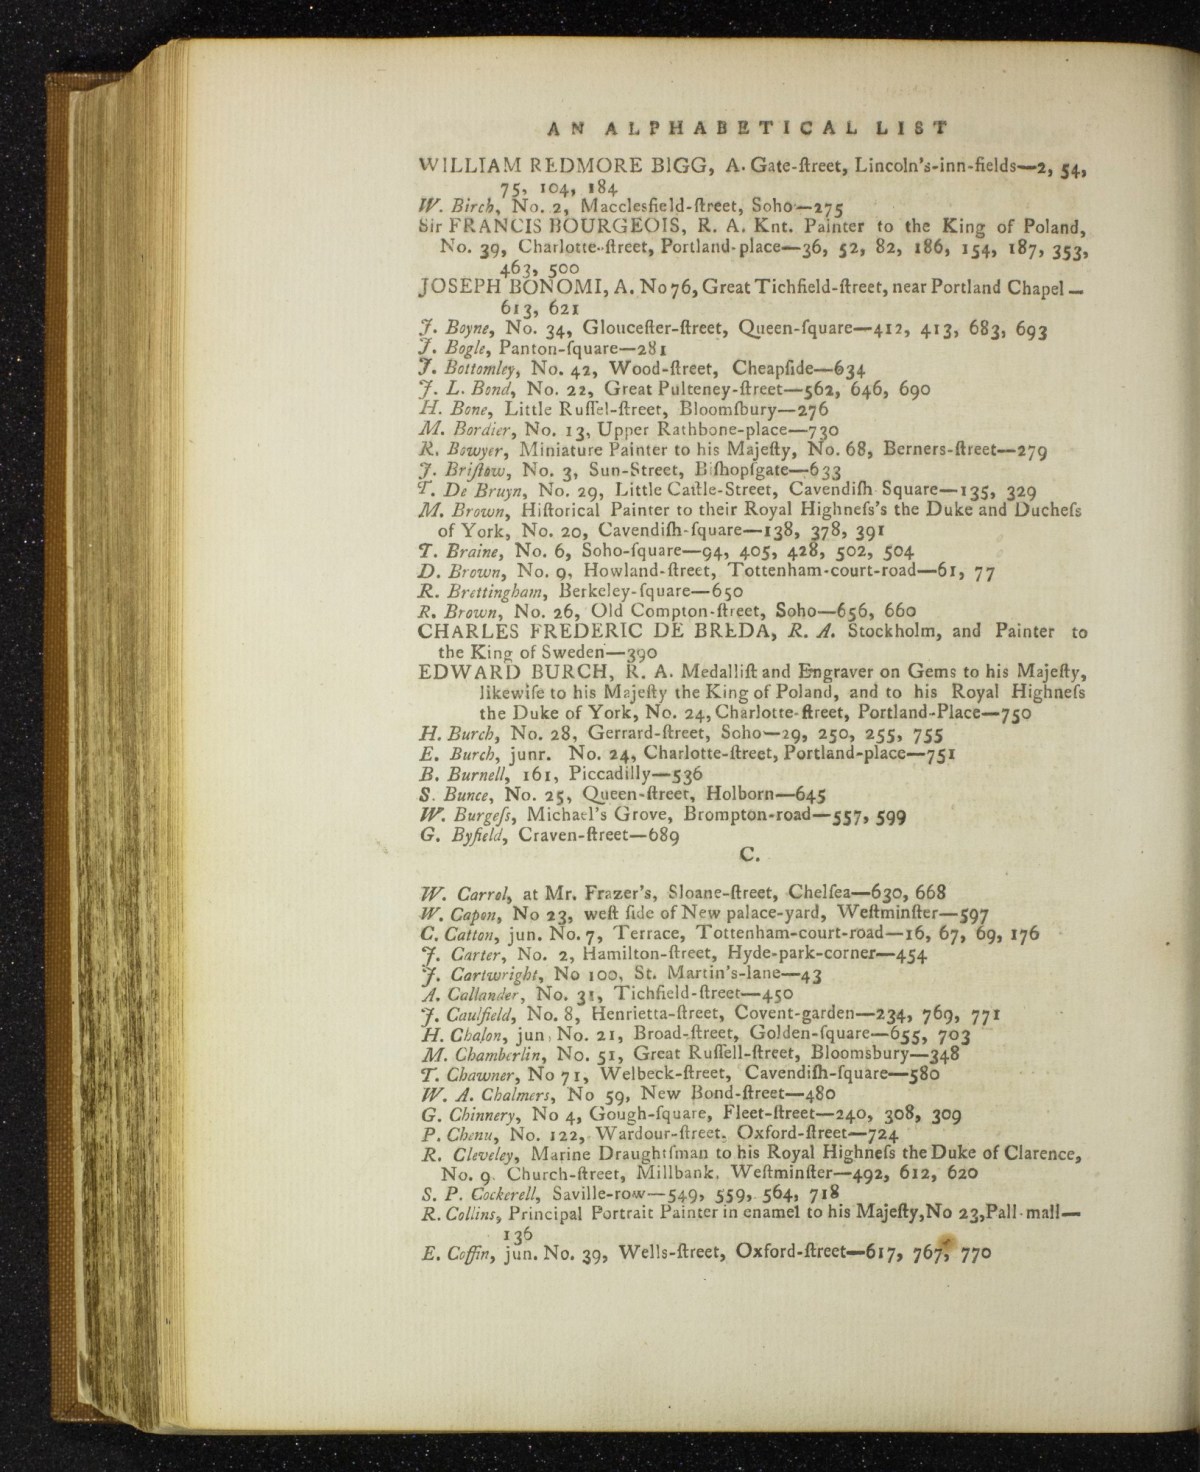 AN ALPHABETICAL LIST
WILLIAM REDMORE BIGG, A. Gate-ſtreet, Lincoln's-inn-fields—2, 54,
75, 104, 184
W. Birch, No. 2, Macclesfield-ſtreet, Soho—275
Sir FRANCIS BOURGEOIS, R. A. Knt. Painter to the King of Poland,
No. 39, Charlotte-ſtreet, Portland-place—36, 52, 82, 186, 154, 187, 353,
463, 500
JOSEPH BONOMI, A. No 76, Great Tichfield-ſtreet, near Portland Chapel—
613, 621
J. Boyne, No. 34, Glouceſter-ſtreet, Queen-ſquare—412, 413, 683, 693
J. Bogle, Panton-ſquare—281
J. Bottomley, No. 42, Wood-ſtreet, Cheapſide—634
J. L. Bond, No. 22, Great Pulteney-ſtreet—562, 646, 690
H. Bone, Little Ruſſel-ſtreet, Bloomſbury—276
M. Bordier, No. 13, Upper Rathbone-place—730
R. Bowyer, Miniature Painter to his Majeſty, No. 68, Berners-ſtreet—279
J. Briſtow, No. 3, Sun-Street, Biſhopſgate—633
T. De Bruyn, No. 29, Little Caſtle-Street, Cavendiſh Square—135, 329
M. Brown, Hiſtorical Painter to their Royal Highneſs's the Duke and Ducheſs
of York, No. 20, Cavendiſh-ſquare—138, 378, 391
T. Braine, No. 6, Soho-ſquare—94, 405, 428, 502, 504
D. Brown, No. 9, Howland-ſtreet, Tottenham-court-road—61, 77
R. Brettingham, Berkeley-ſquare—650
R. Brown, No. 26, Old Compton-ſtreet, Soho—656, 660
CHARLES FREDERIC DE BREDA, R. A. Stockholm, and Painter to
the King of Sweden—390
EDWARD BURCH, R. A. Medalliſt and Engraver on Gems to his Majeſty,
likewiſe to his Majeſty the King of Poland, and to his Royal Highneſs
the Duke of York, No. 24, Charlotte-ſtreet, Portland-Place—750
H. Burch, No. 28, Gerrard-ſtreet, Soho—29, 250, 255, 755
E. Burch, junr. No. 24, Charlotte-ſtreet, Portland-place—751
B. Burnell, 161, Piccadilly—536
S. Bunce, No. 25, Queen-ſtreet, Holborn—645
W. Burgeſs, Michael's Grove, Brompton-road—557, 599
G. Byfield, Craven-ſtreet—689
C.
W. Carrol, at Mr. Frazer's, Sloane-ſtreet, Chelſea—630, 668
W. Capon, No 23, weſt ſide of New palace-yard, Weſtminſter—597
C. Catton, jun. No. 7, Terrace, Tottenham-court-road—16, 67, 69, 176
J. Carter, No. 2, Hamilton-ſtreet, Hyde-park-corner—454
J. Cartwright, No 100, St. Martin's-lane—43
A. Callander, No. 31, Tichfield-ſtreet—450
J. Caulfield, No. 8, Henrietta-ſtreet, Covent-garden—234, 769, 771
H. Chalon, jun. No. 21, Broad-ſtreet, Golden-ſquare—655, 703
M. Chamberlin, No. 51, Great Ruſſell-ſtreet, Bloomsbury—348
T. Chawner, No 71, Welbeck-ſtreet, Cavendiſh-ſquare—580
W. A. Chalmers, No 59, New Bond-ſtreet—480
G. Chinnery, No 4, Gough-ſquare, Fleet-ſtreet—240, 308, 309
P. Chenu, No. 122, Wardour-ſtreet, Oxford-ſtreet—724
R. Cleveley, Marine Draughtſman to his Royal Highneſs the Duke of Clarence,
No. 9. Church-ſtreet, Millbank, Weſtminſter—492, 612, 620
S. P. Cockerell, Saville-row—549, 559, 564, 718
R. Collins, Principal Portrait Painter in enamel to his Majeſty, No 23, Pall-mall—
136
E. Coffin, jun. No. 39, Wells-ſtreet, Oxford-ſtreet—617, 767, 770